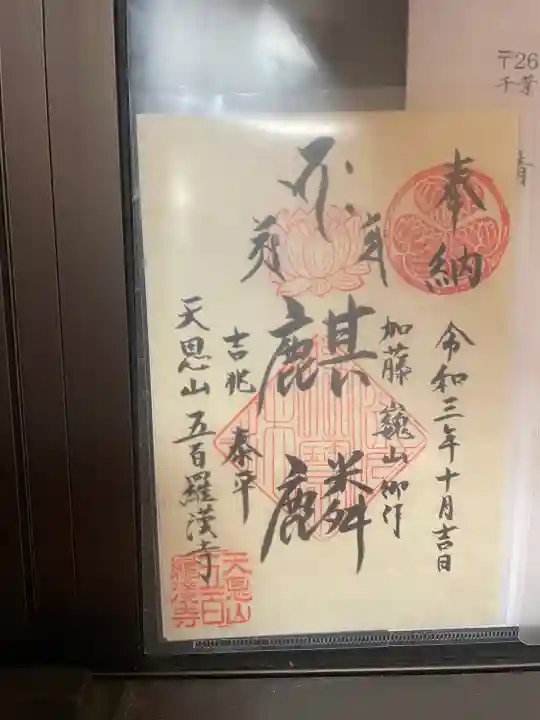 奉納
令和三年十月吉日
加藤巍山御作
麒麟
吉兆
泰平
天恩山五百羅漢寺
天恩山
五百
羅漢寺
〒26
千葉
青